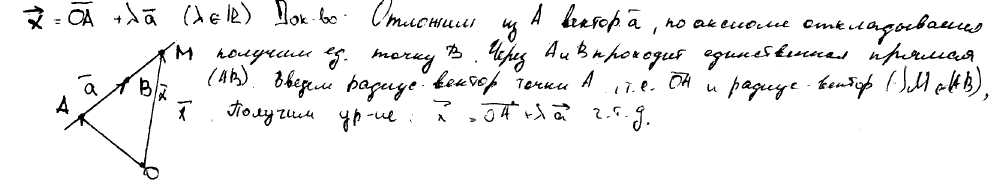 x⃗ = O̅A̅ + λa⃗ (λ ∈ ℝ) Док-во. Отложим из A вектор a̅, по аксиоме откладывания
получим ед. точку B. Через A и B проходит единственная прямая
(AB). Введем радиус-вектор точки A, т.е. O̅A̅ и радиус-вектор (·)M ∈ (AB),
Получим ур-ие: x⃗ = O̅A̅ + λa⃗ ч.т.д.
M
a̅
B
x̅
A
x̅
O